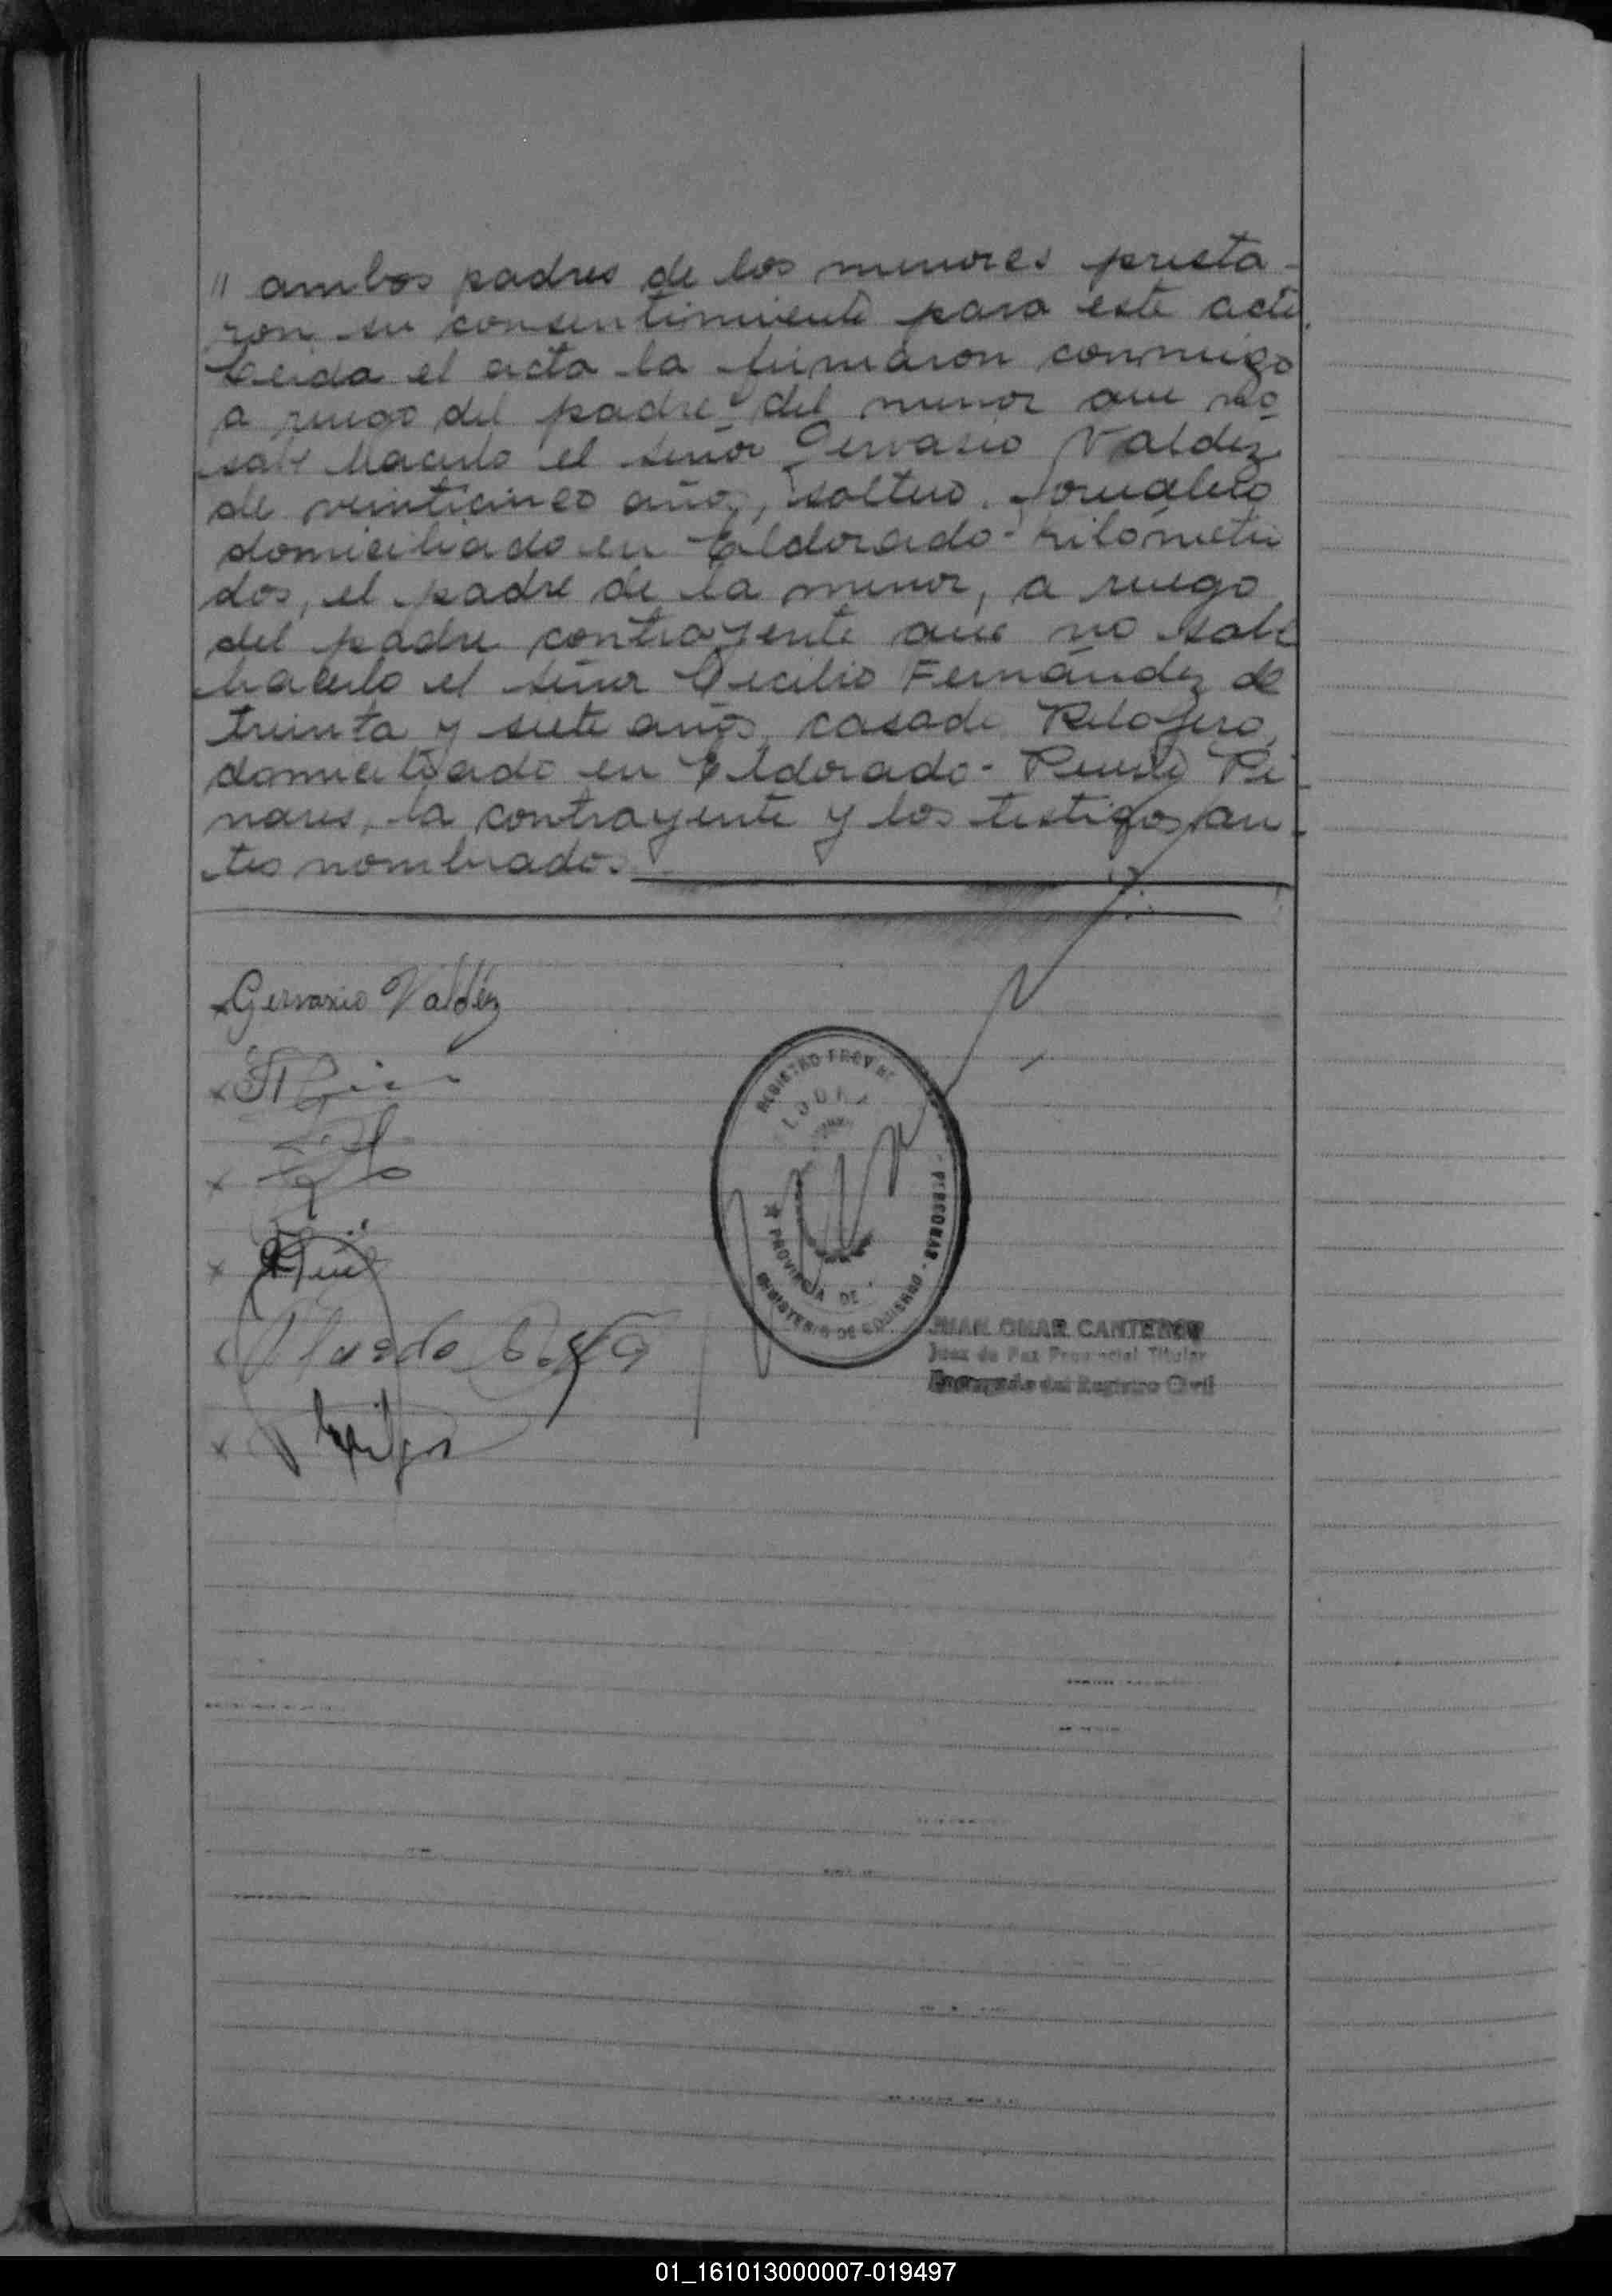 " ambos padres de los menores presta-
ron su consentimiento para este acto.
Leida el acta la firmaron conmigo
a ruego del padre del menor que no
sabe hacerlo el señor Gervasio Valdez
de veinticinco años, soltero, Jornalero
domiciliado en Eldorado- kilómetro
dos, el padre de la menor, a ruego
del padre contrayente que no sabe
hacerlo el señor Cecilio Fernández de
treinta y siete años, casado, Relojero,
domiciliado en Eldorado- Puerto Pi-
nares, la contrayente y los testigos an-
tes nombrados.
Gervasio Valdéz
REGISTRO PROV
PERSONAS
PROVINCIA DE
MINISTERIO DE GOBIERNO
JUAN OMAR CANTEROS
Juez de Paz Provincial Titular
Encargado del Registro Civil
01_161013000007-019497